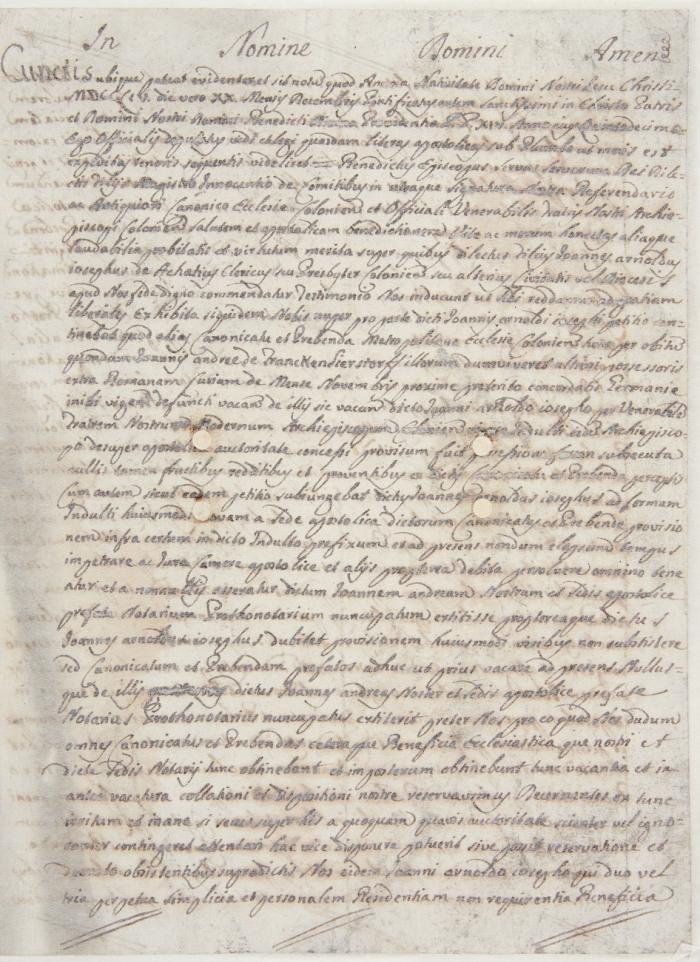 In Nomine Domini Amen
Cunctis ubique pateat evidenter et sit notum quod Anno a Nativitate Domini Nostri Iesu Christi
die vero XX Mensis Decembris Pontificatus autem Sanctissimi in Christo Patris
et Domini Nostri Domini Benedicti Divina Providentia P. P. XIV. Anno
Ego Officialis deputatus vidi et legi quasdam literas apostolicas sub Plumbo ut moris est
expeditas tenoris sequentis videlicet Benedictus Episcopus Servus Servorum Dei Dile-
ctis filijs Magistro Innocentio de Comitibus in utraque Signatura Nostra Referendario
ac Antiquiori Canonico Ecclesie Colonien et Officiali Venerabilis Fratris Nostri Archie-
piscopi Colonien salutem et apostolicam benedictionem Vite ac morum honestas aliaque
laudabilia probitatis et virtutum merita super quibus dilectus filius Ioannes arnoldus
iosephus de Clericus seu Presbyter Colonien seu alterius Civitatis vel Diocesis
apud Nos fide digno commendatur Testimonio Nos inducunt ut sibi reddamur ad gratiam
liberales Exhibita siquidem Nobis nuper pro parte dicti Ioannis arnoldi iosephi petitio con-
tinebat quod alias Canonicatu et Prebenda Metropolitane Ecclesie Colonien per obitum
quondam Ioannis andree de Francken Sierstorff illorum dum viveret ultimi possessoris
extra Romanam Curiam de Mense Novembris proxime preterito concordatis Germanie
inibi vigen defuncti vacan de illis sic vacan dicto Ioanni arnoldo iosepho per Venerabilem
Fratrem Nostrum Modernum Archiepiscopum Colonien Indulti eidem Archiepisco-
po desuper apostolica auctoritate concessi provisum fuit possessione subsecuta
nullis tamen fructibus redditibus et proventibus ex dictis Canonicatu et Prebenda perceptis
Cum autem sicut eadem petitio subiungebat dictus Ioannes arnoldus iosephus ad formam
Indulti huiusmodi novam a Sede apostolica dictorum Canonicatus et Prebende provisio
nem infra certum in dicto Indulto prefixum et ad presens nondum elapsum tempus
impetrare ac Iura Camere apostolice et alijs propterea debita persolvere omnino tene
atur et a nonnullis asseratur dictum Ioannem andream Nostrum et Sedis apostolice
prefate Notarium Prothonotarium nuncupatum extitisse propterea que dictus
Ioannes arnoldus iosephus dubitet provisionem huiusmodi viribus non subsistere
sed Canonicatum et Prebendam prefatos adhuc ut prius vacare ad presens Nullus-
que de illis dictus Ioannes andreas Noster et Sedis apostolice prefate
Notarius Prothonotarius nuncupatus extiterit preter Nos pro eo quod Nos dudum
omnes Canonicatus et Prebendas ceteraque Beneficia Ecclesiastica que nostri et
dicte Sedis Notarij tunc obtinebant et imposterum obtinebunt tunc vacantia et in
antea vacatura collationi et dispositioni nostre reservavimus Decernentes ex tunc
irritum et inane si secus super his a quoquam quavis auctoritate scienter vel igno-
ranter contingeret attentari hac vice disponere potuerit sive possit reservatione et
decreto obsistentibus supradictis Nos eidem Ioanni arnoldo iosepho qui duo vel
tria perpetua simplicia et personalem Residentiam non requirentia Beneficia